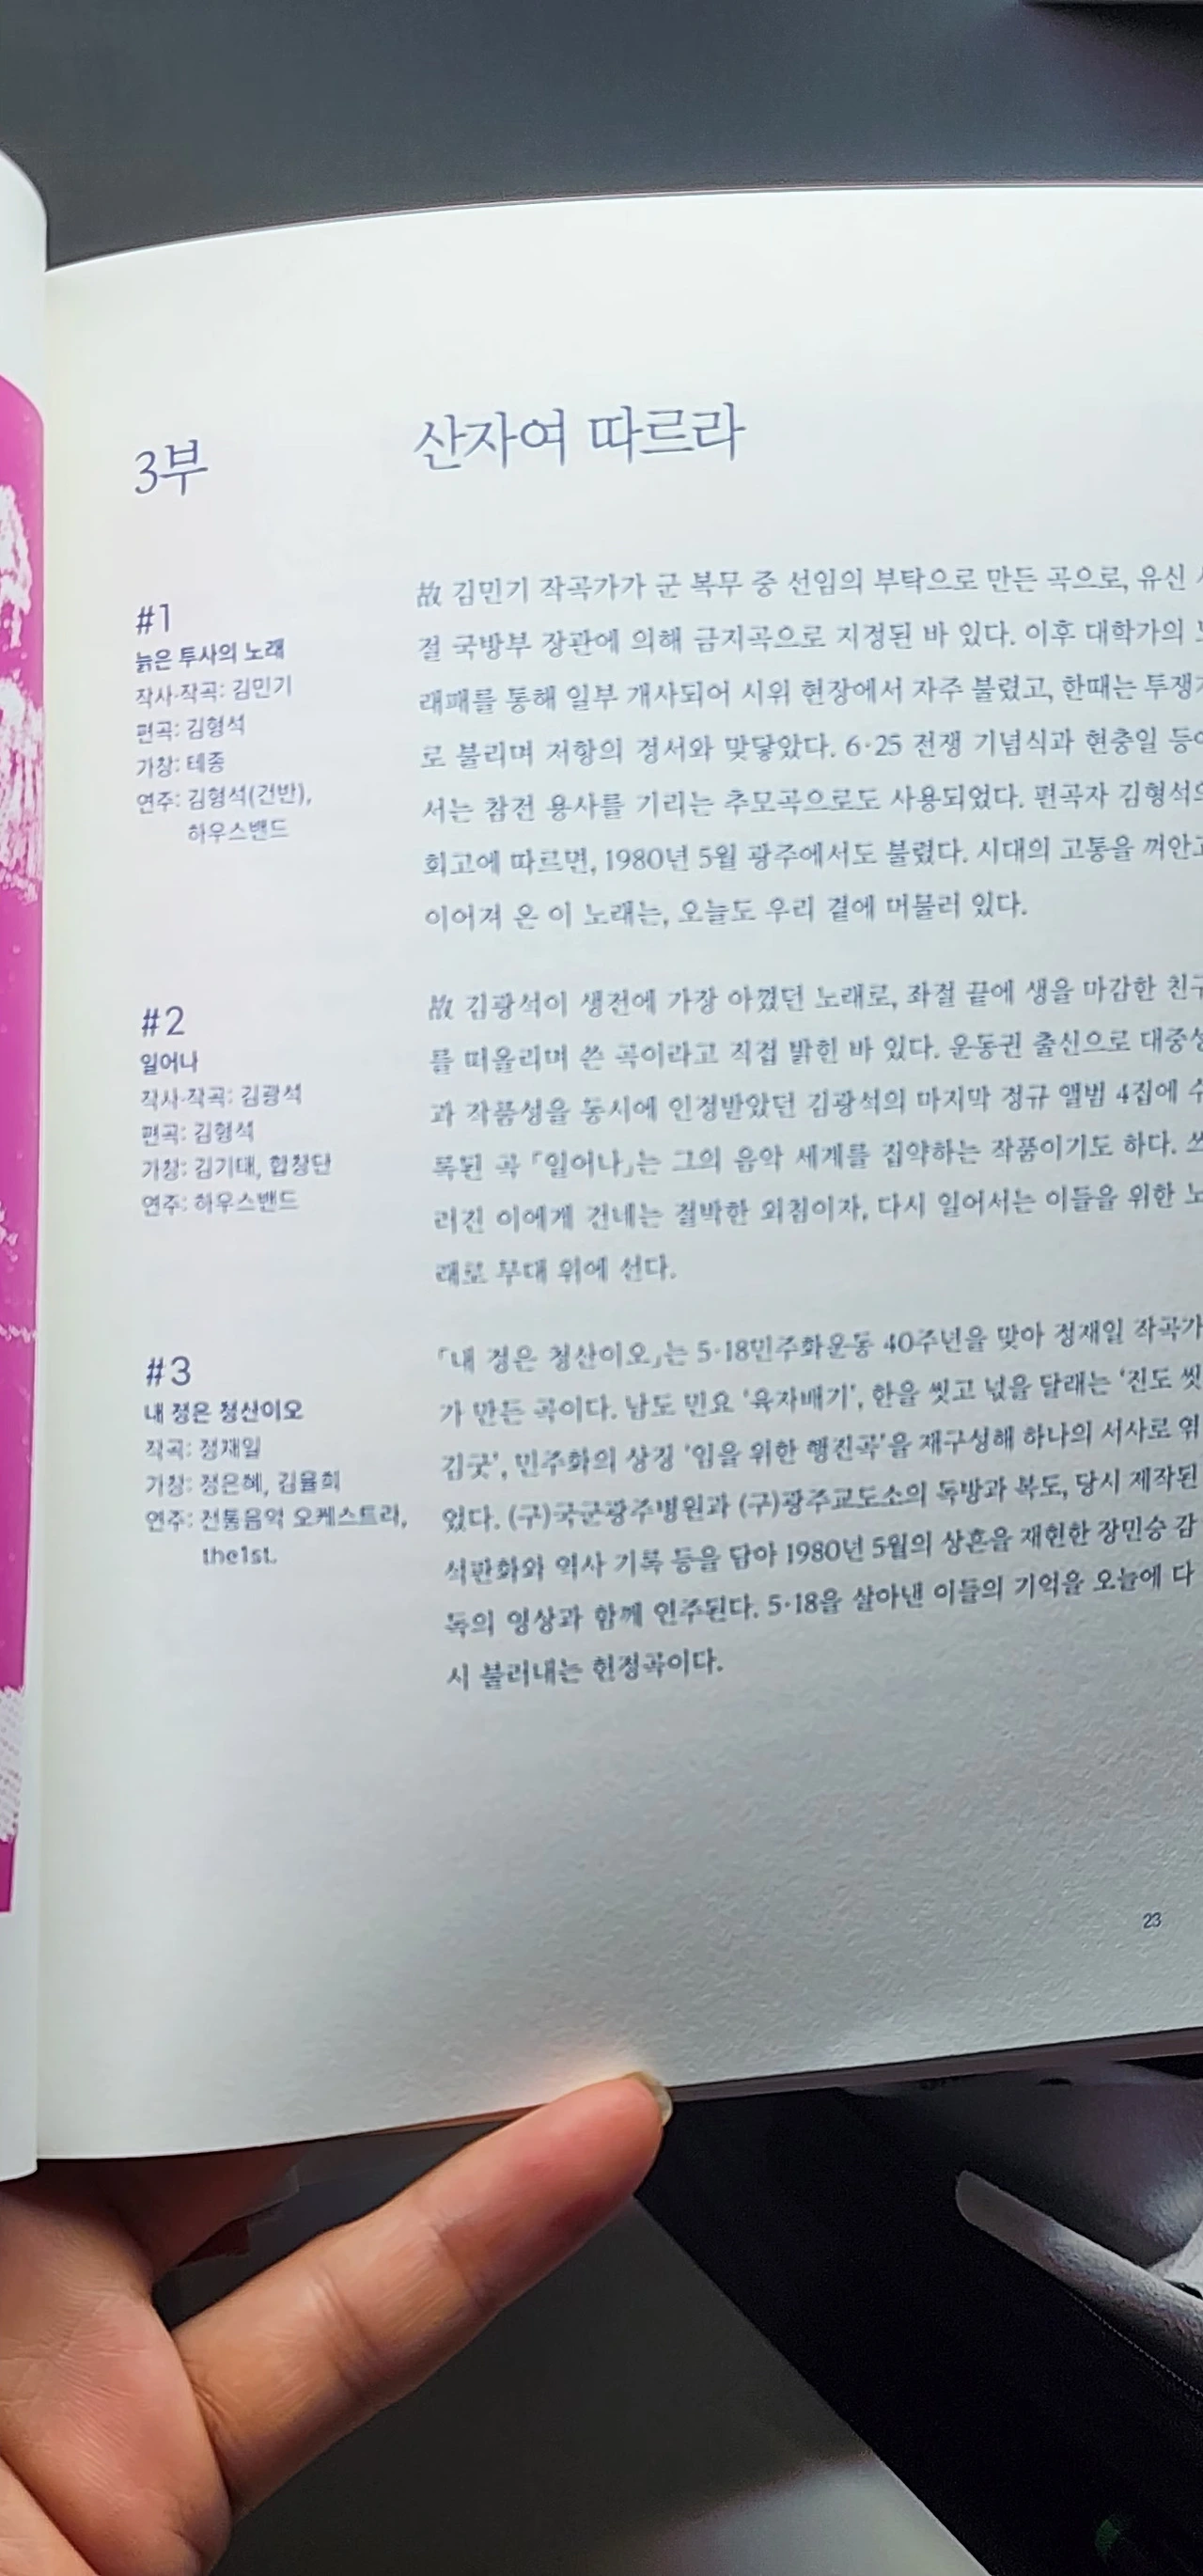 3부
산자여 따르라
#1
늙은 투사의 노래
작사·작곡: 김민기
편곡: 김형석
가창: 테종
연주: 김형석(건반),
하우스밴드
故 김민기 작곡가가 군 복무 중 선임의 부탁으로 만든 곡으로, 유신
절 국방부 장관에 의해 금지곡으로 지정된 바 있다. 이후 대학가의
래패를 통해 일부 개사되어 시위 현장에서 자주 불렸고, 한때는
로 불리며 저항의 정서와 맞닿았다. 6·25 전쟁 기념식과 현충일
서는 참전 용사를 기리는 추모곡으로도 사용되었다. 편곡자
회고에 따르면, 1980년 5월 광주에서도 불렸다. 시대의 고통을 껴안고
이어져 온 이 노래는, 오늘도 우리 곁에 머물러 있다.
#2
일어나
작사·작곡: 김광석
편곡: 김형석
가창: 김기태, 합창단
연주: 하우스밴드
故 김광석이 생전에 가장 아꼈던 노래로, 좌절 끝에 생을 마감한 친구
를 떠올리며 쓴 곡이라고 직접 밝힌 바 있다. 운동권 출신으로 대중성
과 작품성을 동시에 인정받았던 김광석의 마지막 정규 앨범 4집에 수
록된 곡 「일어나」는 그의 음악 세계를 집약하는 작품이기도 하다. 쓰
러진 이에게 건네는 절박한 외침이자, 다시 일어서는 이들을 위한 노
래로 무대 위에 선다.
#3
내 정은 청산이오
작곡: 정재일
가창: 정은혜, 김율희
연주: 전통음악 오케스트라,
the1st.
「내 정은 청산이오」는 5·18민주화운동 40주년을 맞아 정재일 작곡가
가 만든 곡이다. 남도 민요 '육자배기', 한을 씻고 넋을 달래는 '진도 씻
김굿', 민주화의 상징 '임을 위한 행진곡'을 재구성해 하나의 서사로 엮
었다. (구)국군광주병원과 (구)광주교도소의 독방과 복도, 당시 제작된
석판화와 역사 기록 등을 담아 1980년 5월의 상흔을 재현한 장민승 감
독의 영상과 함께 연주된다. 5·18을 살아낸 이들의 기억을 오늘에 다
시 불러내는 헌정곡이다.
23